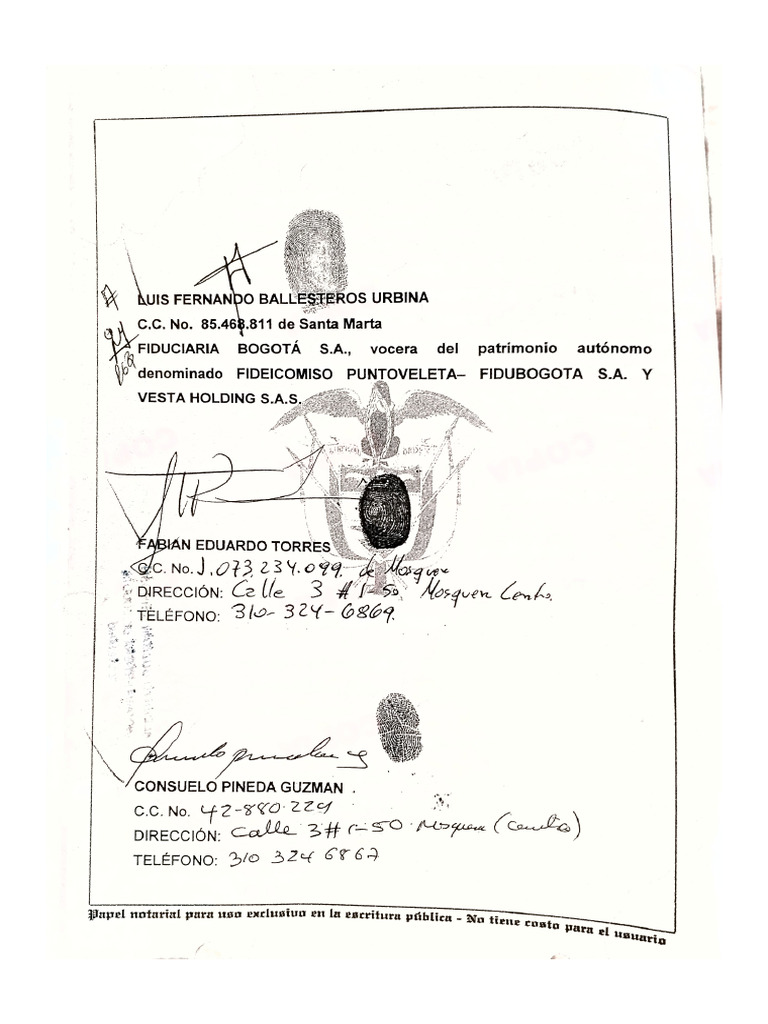 LUIS FERNANDO BALLESTEROS URBINA
C.C. No. 85.468.811 de Santa Marta
FIDUCIARIA BOGOTÁ S.A., vocera del patrimonio autónomo
denominado FIDEICOMISO PUNTOVELETA– FIDUBOGOTA S.A. Y
VESTA HOLDING S.A.S.
FABIAN EDUARDO TORRES
C.C. No. 1.073.234.099. de Mosquera
DIRECCIÓN: Calle 3 # 1-50 Mosquera Centro.
TELÉFONO: 310-324-6869.
CONSUELO PINEDA GUZMAN
C.C. No. 42-880.229
DIRECCIÓN: Calle 3# 1-50 Mosquera (Centro)
TELÉFONO: 310 324 6867
Papel notarial para uso exclusivo en la escritura pública - No tiene costo para el usuario